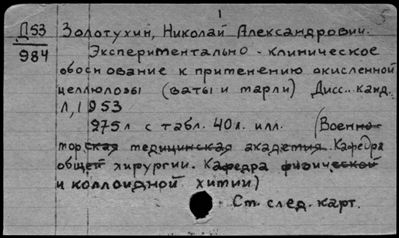 1
5
Д53 Золотухин, Николай Александрович.
984 Экспериментально-клиническое
обоснование к применению окисленной
целлюлозы (ваты и марли) Дисс.. канд.
Л., 1953
275л с табл. 40л. илл. (Военно-
торская медицинская академия. Кафедра
общей хирургии. Кафедра физической
и коллоидной химии)
Ст. след. карт.